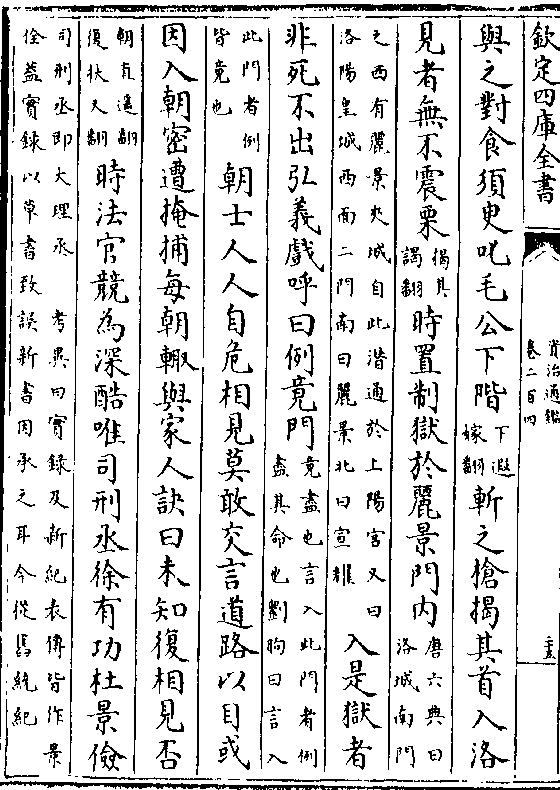 欽定四庫全書
資治通鑑
卷二百四
與之對食須臾叱毛公下階
下遐
嫁翻
斬之槍揭其首入洛
見者無不震栗
揭其
謁翻
時置制獄於麗景門内
唐六典曰
洛城南門
之西有麗景夾城自此潜通於上陽宫又曰
洛陽皇城西面二門南曰麗景北曰宣耀
入是獄者
非死不出弘義戯呼曰例竟門
竟盡也言入此門者例
盡其命也劉昫曰言入
此門者例
皆竟也
朝士人人自危相見莫敢交言道路以目或
因入朝密遭掩捕每朝輙與家人訣曰未知復相見否
朝直遥翻
復扶又翻
時法官競為深酷唯司刑丞徐有功杜景儉
司刑丞即大理丞 考異曰實録及新紀表傳皆作景
佺葢實録以草書致誤新書因承之耳今從馬統紀